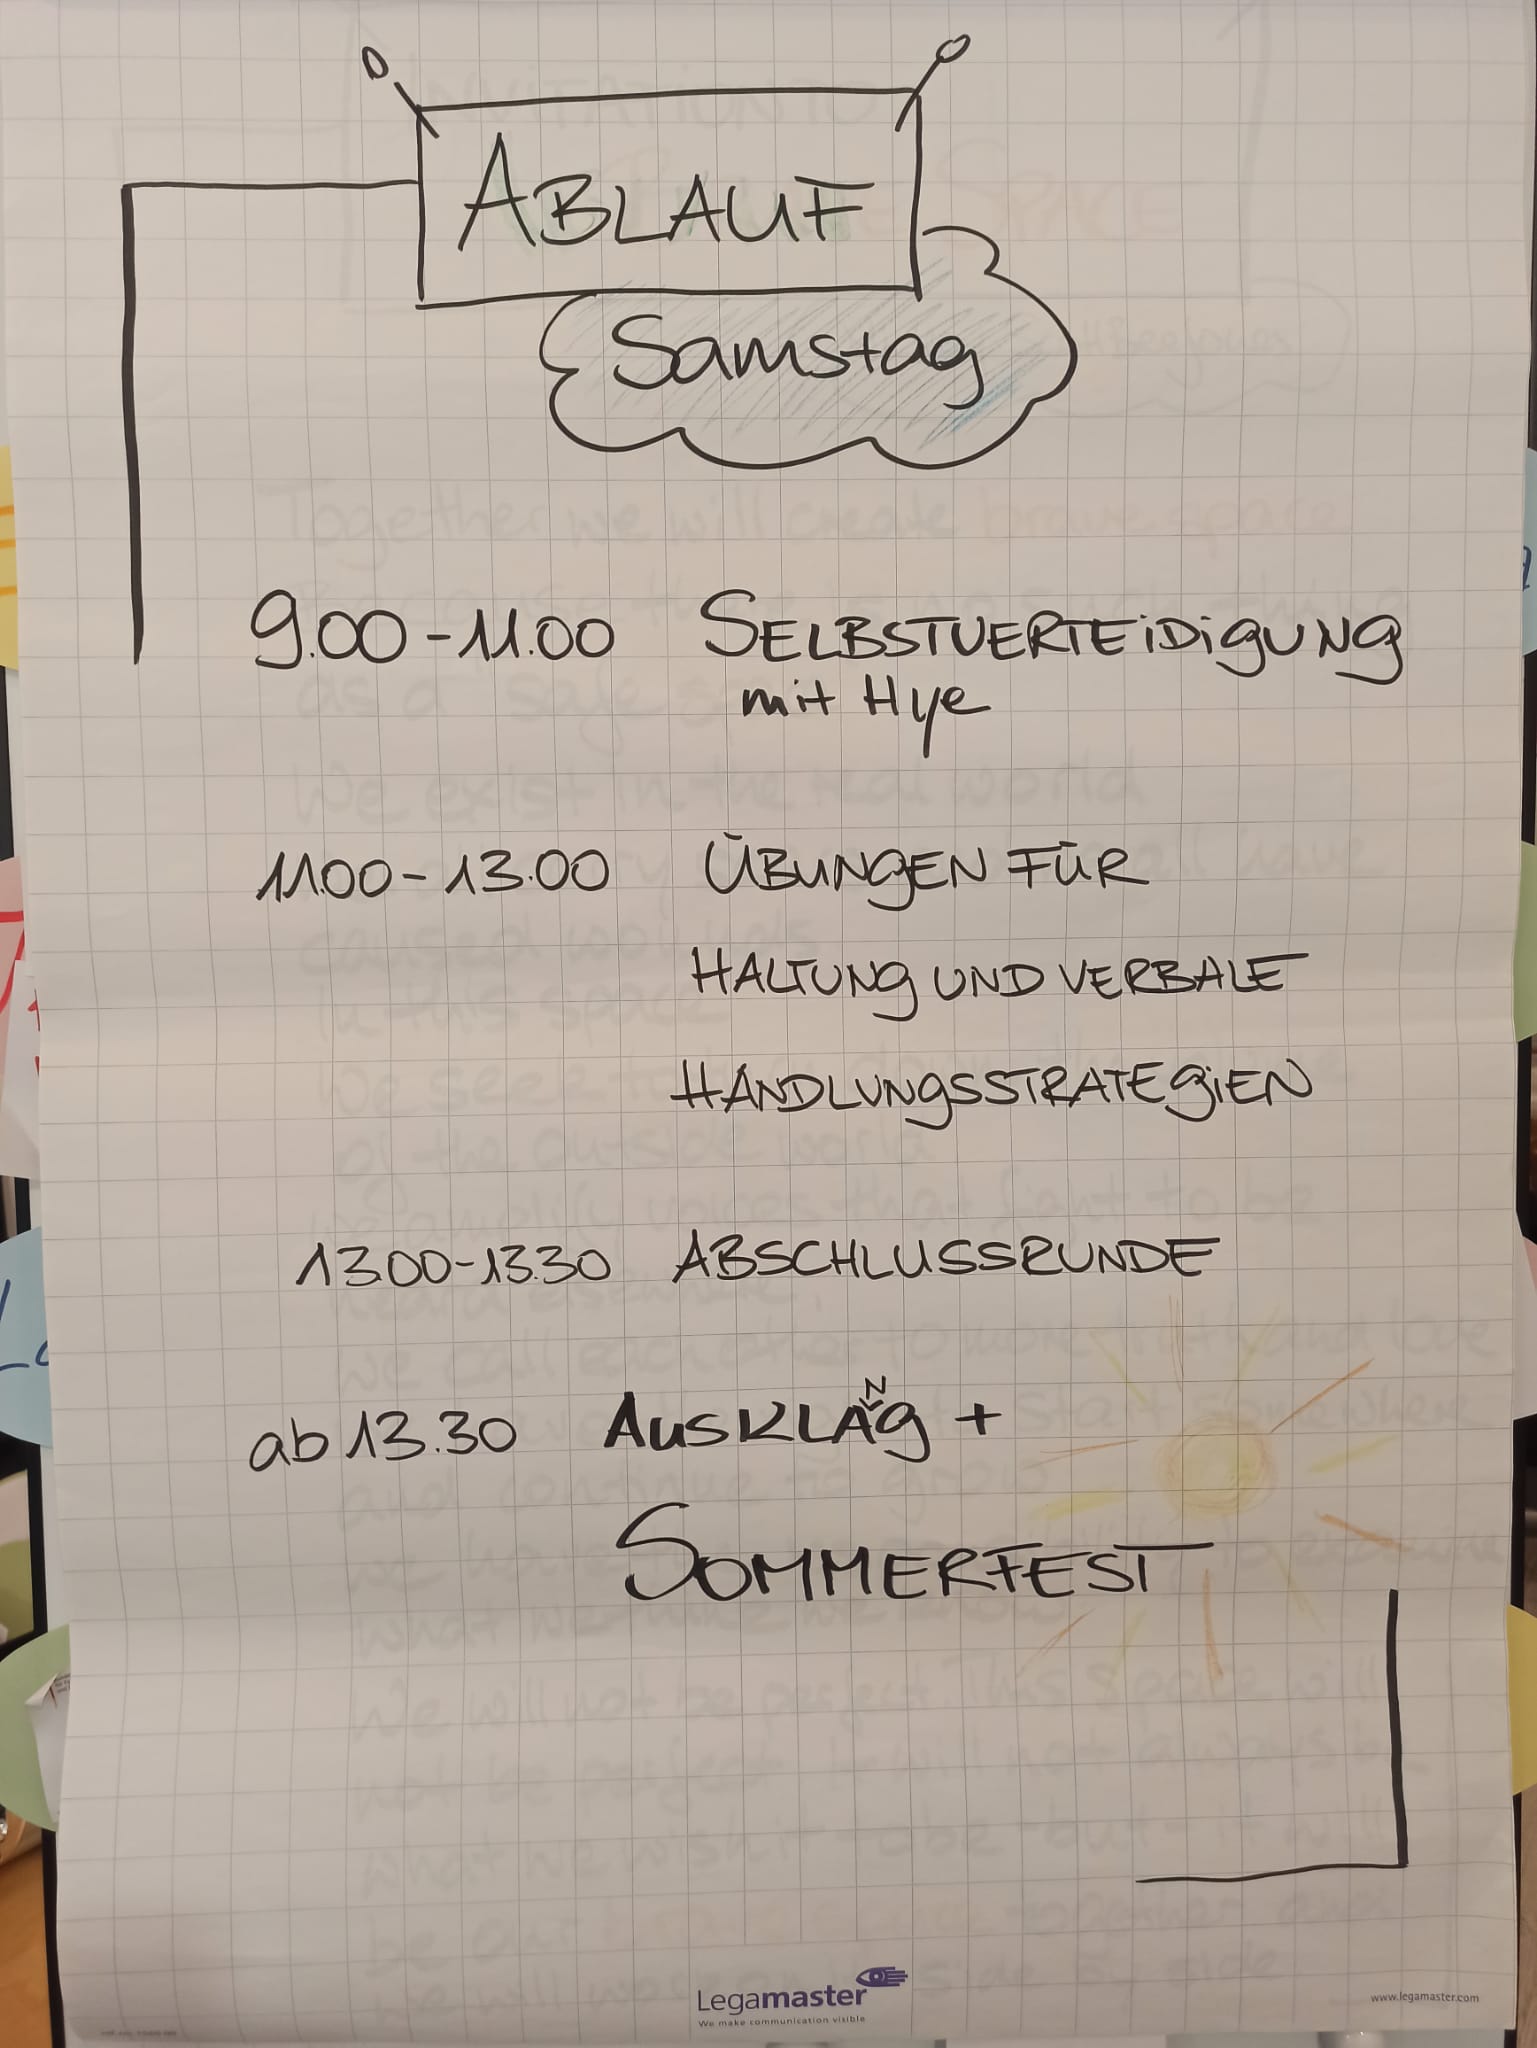 ABLAUF
Samstag
9.00-11.00 SELBSTVERTEIDIGUNG
mit Hye
11.00-13.00 ÜBUNGEN FÜR
HALTUNG UND VERBALE
HANDLUNGSSTRATEGIEN
13.00-13.30 ABSCHLUSSRUNDE
ab 13.30 AUSKLANG +
SOMMERFEST
Legamaster
We make communication visible
www.legamaster.com